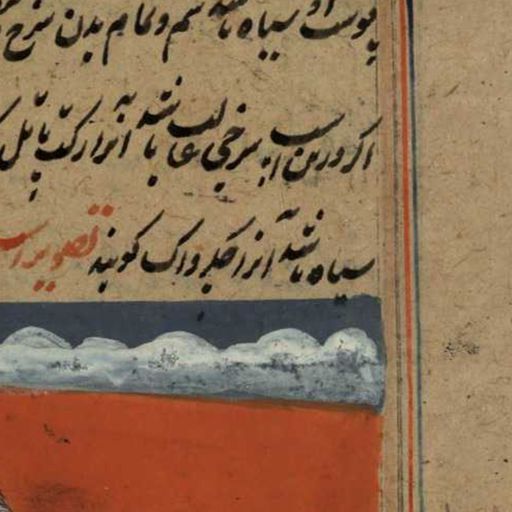 پوست او سیاه باشد سم و تمام بدن سرخ
اگر در بدن اسپ سرخی غالب باشد آنرا رکت پاتل
سیاه باشد آنرا چکرواک گویند تصویر اسپ